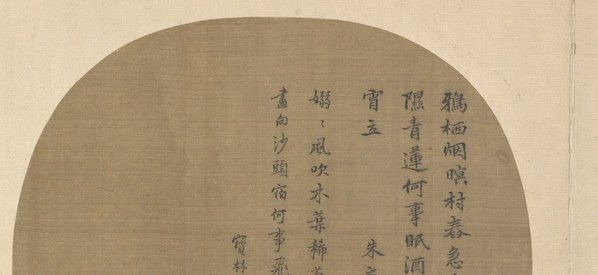 鴉栖烟暝村舂急
隰青蓮何事眠酒
霄立 朱
嫋〻風吹木葉稀
盡向沙頭宿何事飛
寶林